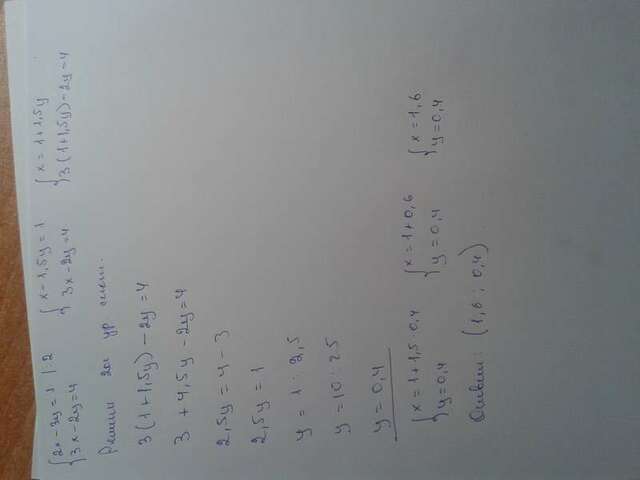 {2x - 3y = 1 | : 2 {x - 1,5y = 1 {x = 1 + 1,5y
{3x - 2y = 4 {3x - 2y = 4 {3(1 + 1,5y) - 2y = 4
Решим 2ое ур
3(1 + 1,5y) - 2y = 4
3 + 4,5y - 2y = 4
2,5y = 4 - 3
2,5y = 1
y = 1 : 2,5
y = 10 : 25
y = 0,4
{x = 1 + 1,5·0,4 {x = 1 + 0,6 {x = 1,6
{y = 0,4 {y = 0,4 {y = 0,4
Ответ: (1,6 ; 0,4)